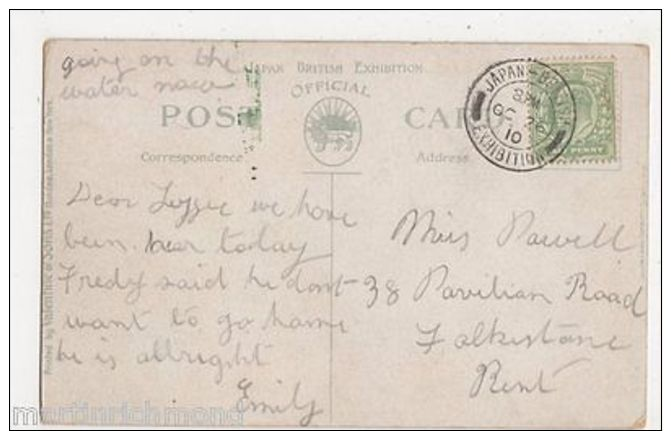 going on the
water now
JAPAN BRITISH EXHIBITION.
OFFICIAL
POST CARD
Correspondence
Address
JAPAN-BRITISH
8 PM
OC
10
EXHIBITION
PENNY
Printed by VALENTINE & SONS LTD
Dear we have
been hear today
Fredy said he dont
want to go home
he is allright
Emily
Miss Powell
38 Pavilian Road
Falkestone
Kent
martinrichmond